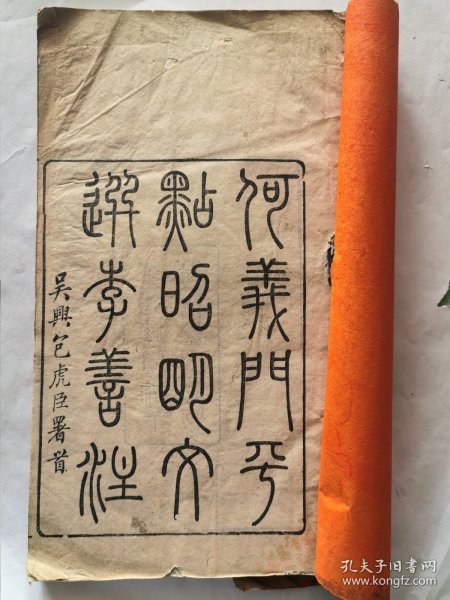 何義門平
點昭明文
選李善注
吳興包虎臣署首
孔夫子旧书网
www.kongfz.com